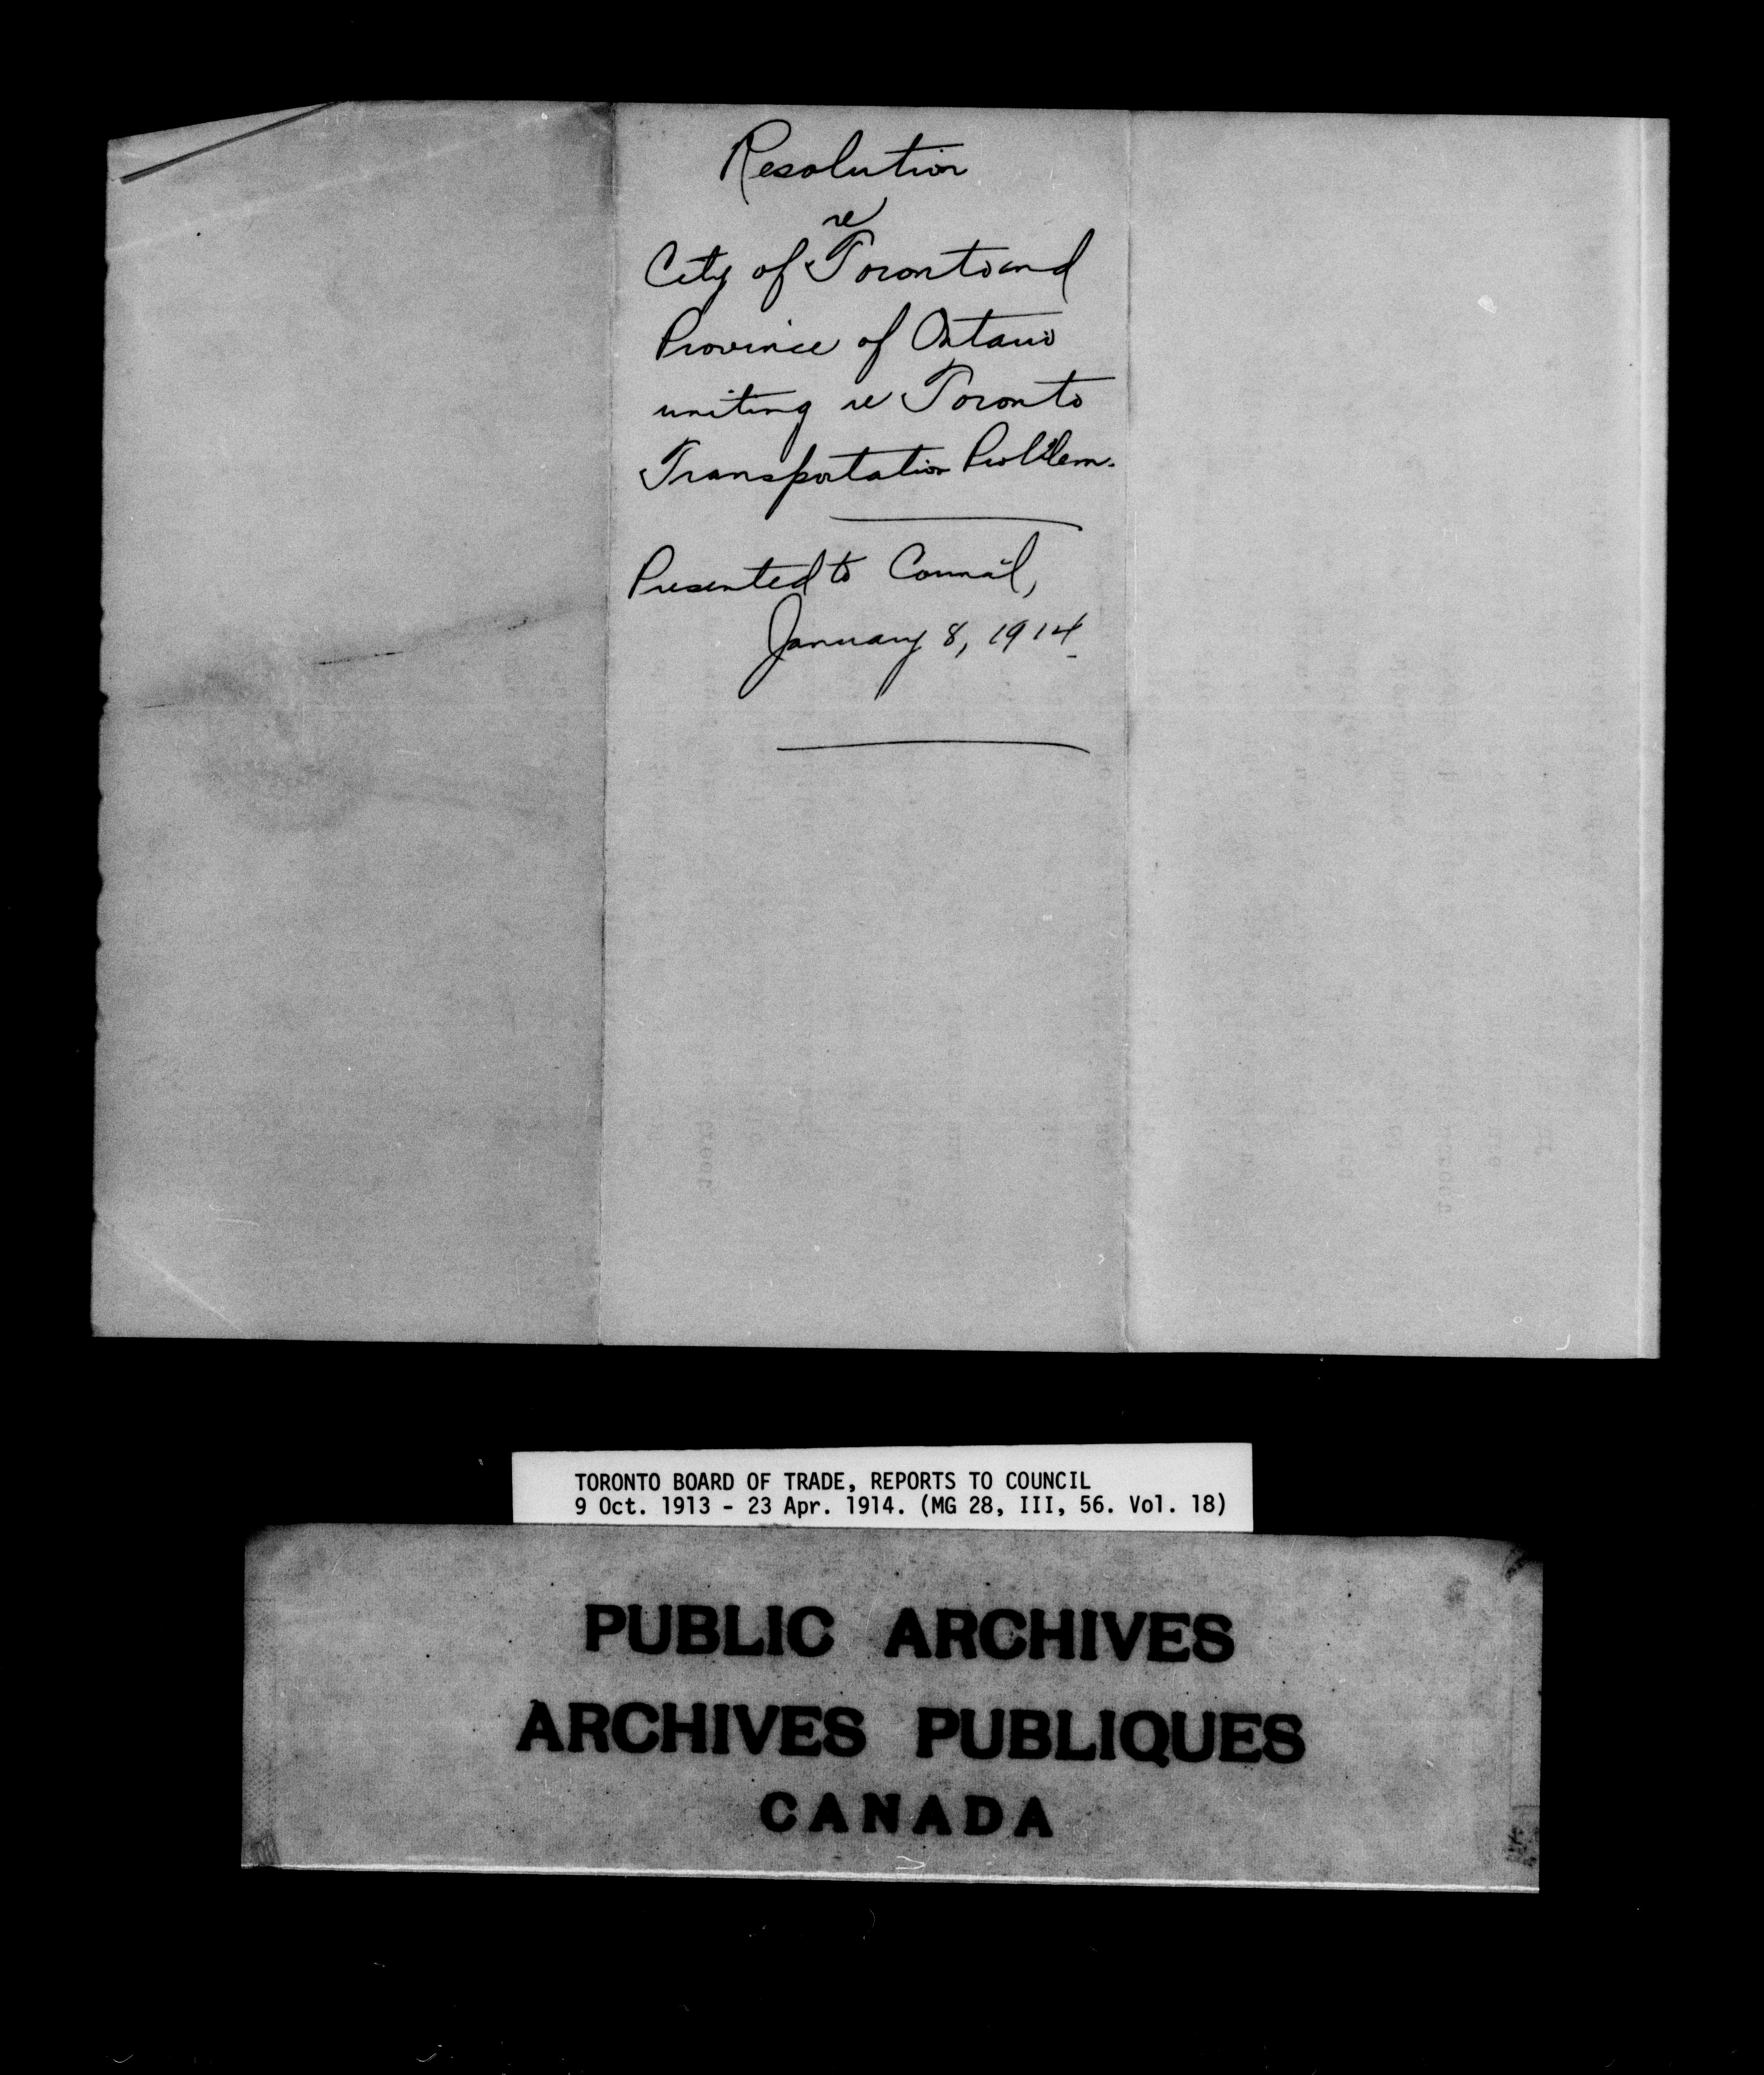 Resolution
re
City of Toronto and
Province of Ontario
uniting re Toronto
Transportation Problem.
Presented to Council,
January 8, 1914
TORONTO BOARD OF TRADE, REPORTS TO COUNCIL
9 Oct. 1913 - 23 Apr. 1914. (MG 28, III, 56. Vol. 18)
PUBLIC ARCHIVES
ARCHIVES PUBLIQUES
CANADA